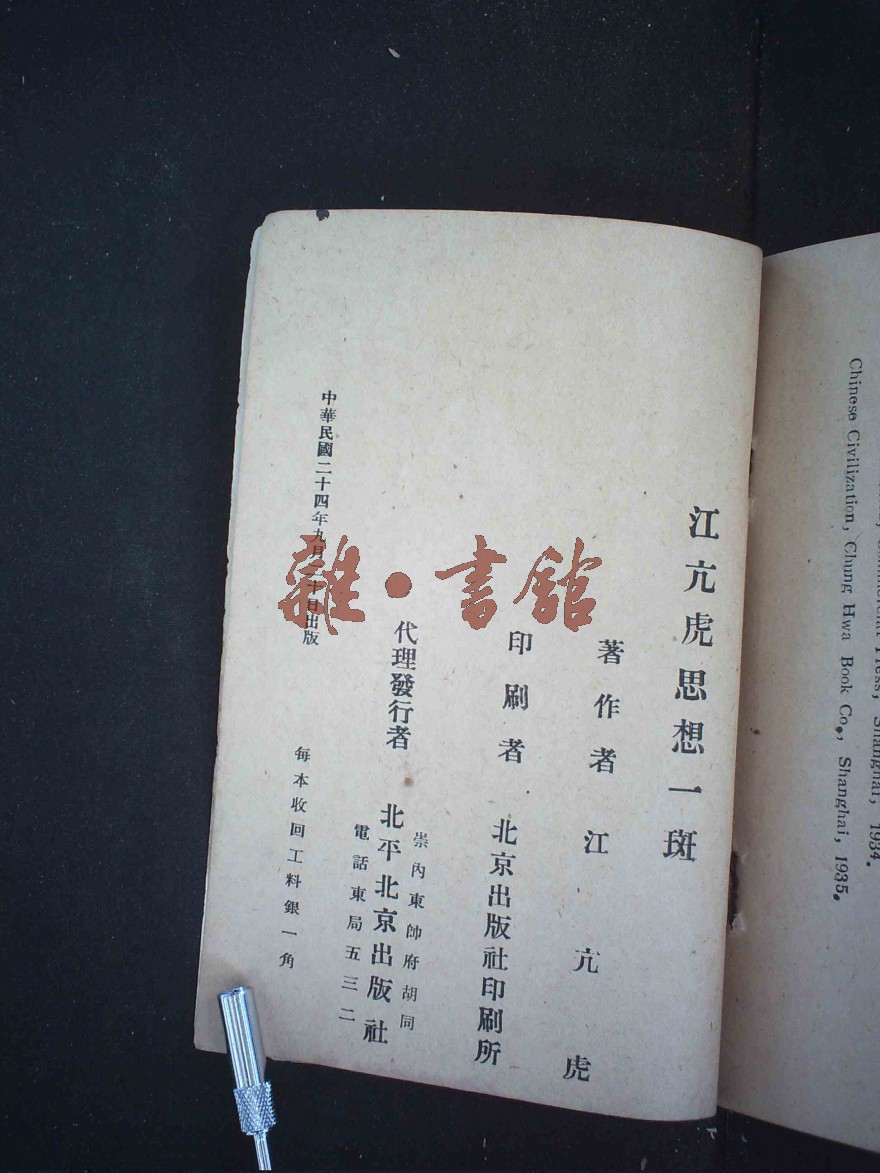 江亢虎思想一斑
著作者 江亢虎
印刷者 北京出版社印刷所
代理發行者 北平北京出版社
崇內東帥府胡同
電話東局五三二
中華民國二十四年九月二十日出版
每本收回工料銀一角
雜·書館
Commercial Press, Shanghai, 1934.
Chinese Civilization, Chung Hwa Book Co., Shanghai, 1935.